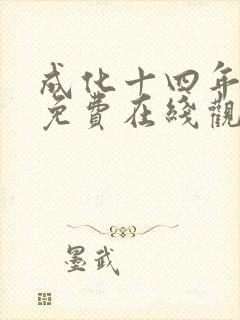 成化十四年
免費在綫觀
墨武